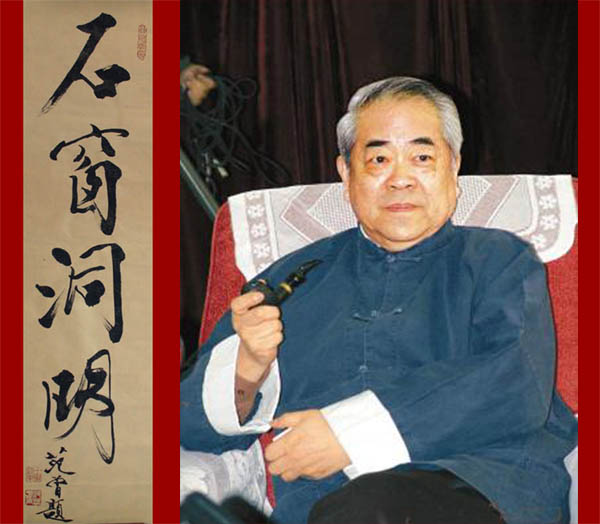 石窗洞明
范曾题